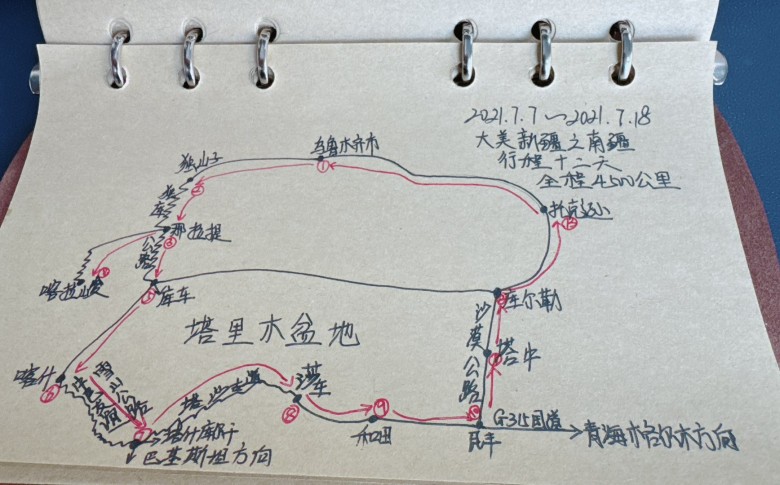 2021.7.7～2021.7.18
大美新疆之南疆
行程十二天
全程4500公里
乌鲁木齐市
①
独山子
②
独库公路
那拉提
③
④
⑤
库车
托克逊
库尔勒
沙漠公路
塔中
塔里木盆地
喀什
⑥
雪山公路
⑦
塔什库尔干
巴基斯坦方向
莎车
⑧
⑨
和田
⑩
民丰
G315国道
青海格尔木方向